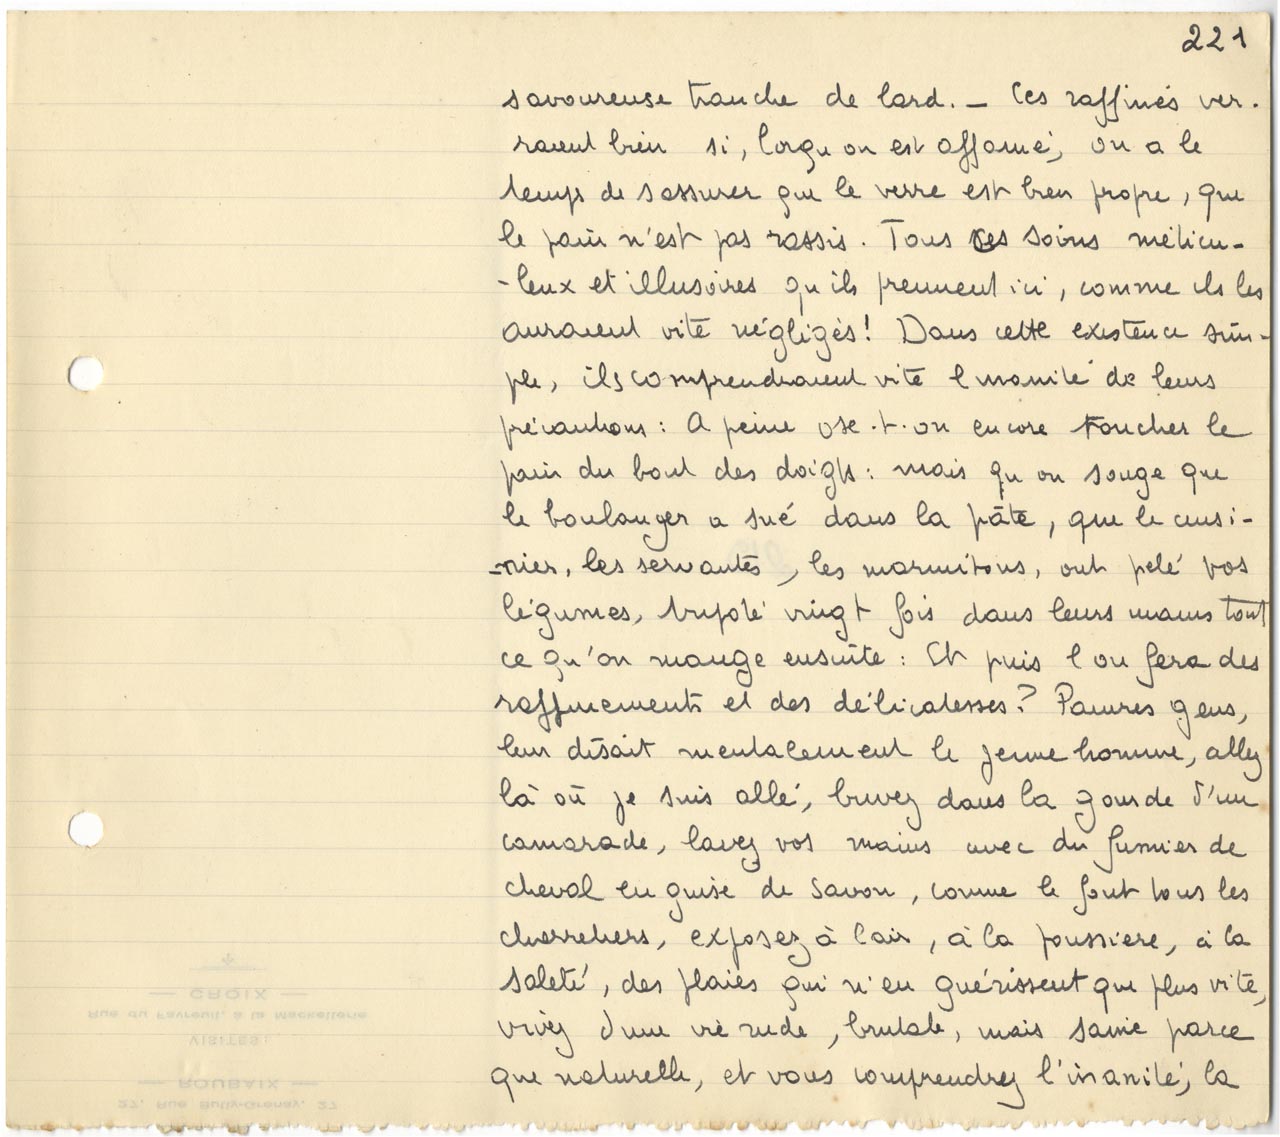 221
savoureuse tranche de lard. _ Ces raffinés ver-
raient bien si, lorqu'on est affamé, on a le
temps de s'assurer que le verre est bien propre, que
le pain n'est pas rassis. Tous ces soins méticu-
-leux et illusoires qu'ils prennent ici, comme ils les
auraient vite négligés! Dans cette existence sim-
ple, ils comprendraient vite l'inanité de leurs
précautions : A peine ose-t-on encore toucher le
pain du bout des doigts : mais qu'on songe que
le boulanger a sué dans la pâte, que le cuisi-
-nier, les servantes, les marmitons, ont pelé vos
légumes, tripoté vingt fois dans leurs mains tout
ce qu'on mange ensuite : Et puis l'on fera des
raffinements et des délicatesses? Pauvres gens,
leur disait mentalement le jeune homme, allez
là où je suis allé, buvez dans la gourde d'un
camarade, lavez vos mains avec du fumier de
cheval en guise de savon, comme le font tous les
charretiers, exposez à l'air, à la poussière, à la
saleté, des plaies qui n'en guérissent que plus vite,
vivez d'une vie rude, brutale, mais saine parce
que naturelle, et vous comprendrez l'inanité, la
— CROIX —
Rue du Favreuil, à la Mackellerie
VISITES :
— ROUBAIX —
27, Rue Bully-Grenay, 27